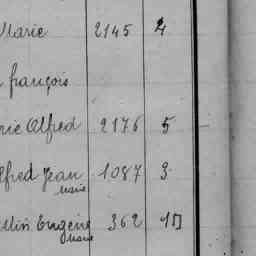 Marie 2145 4
françois
Alfred 2176 5
Jean 1087 3
Marie
Eugène 362 10
Marie